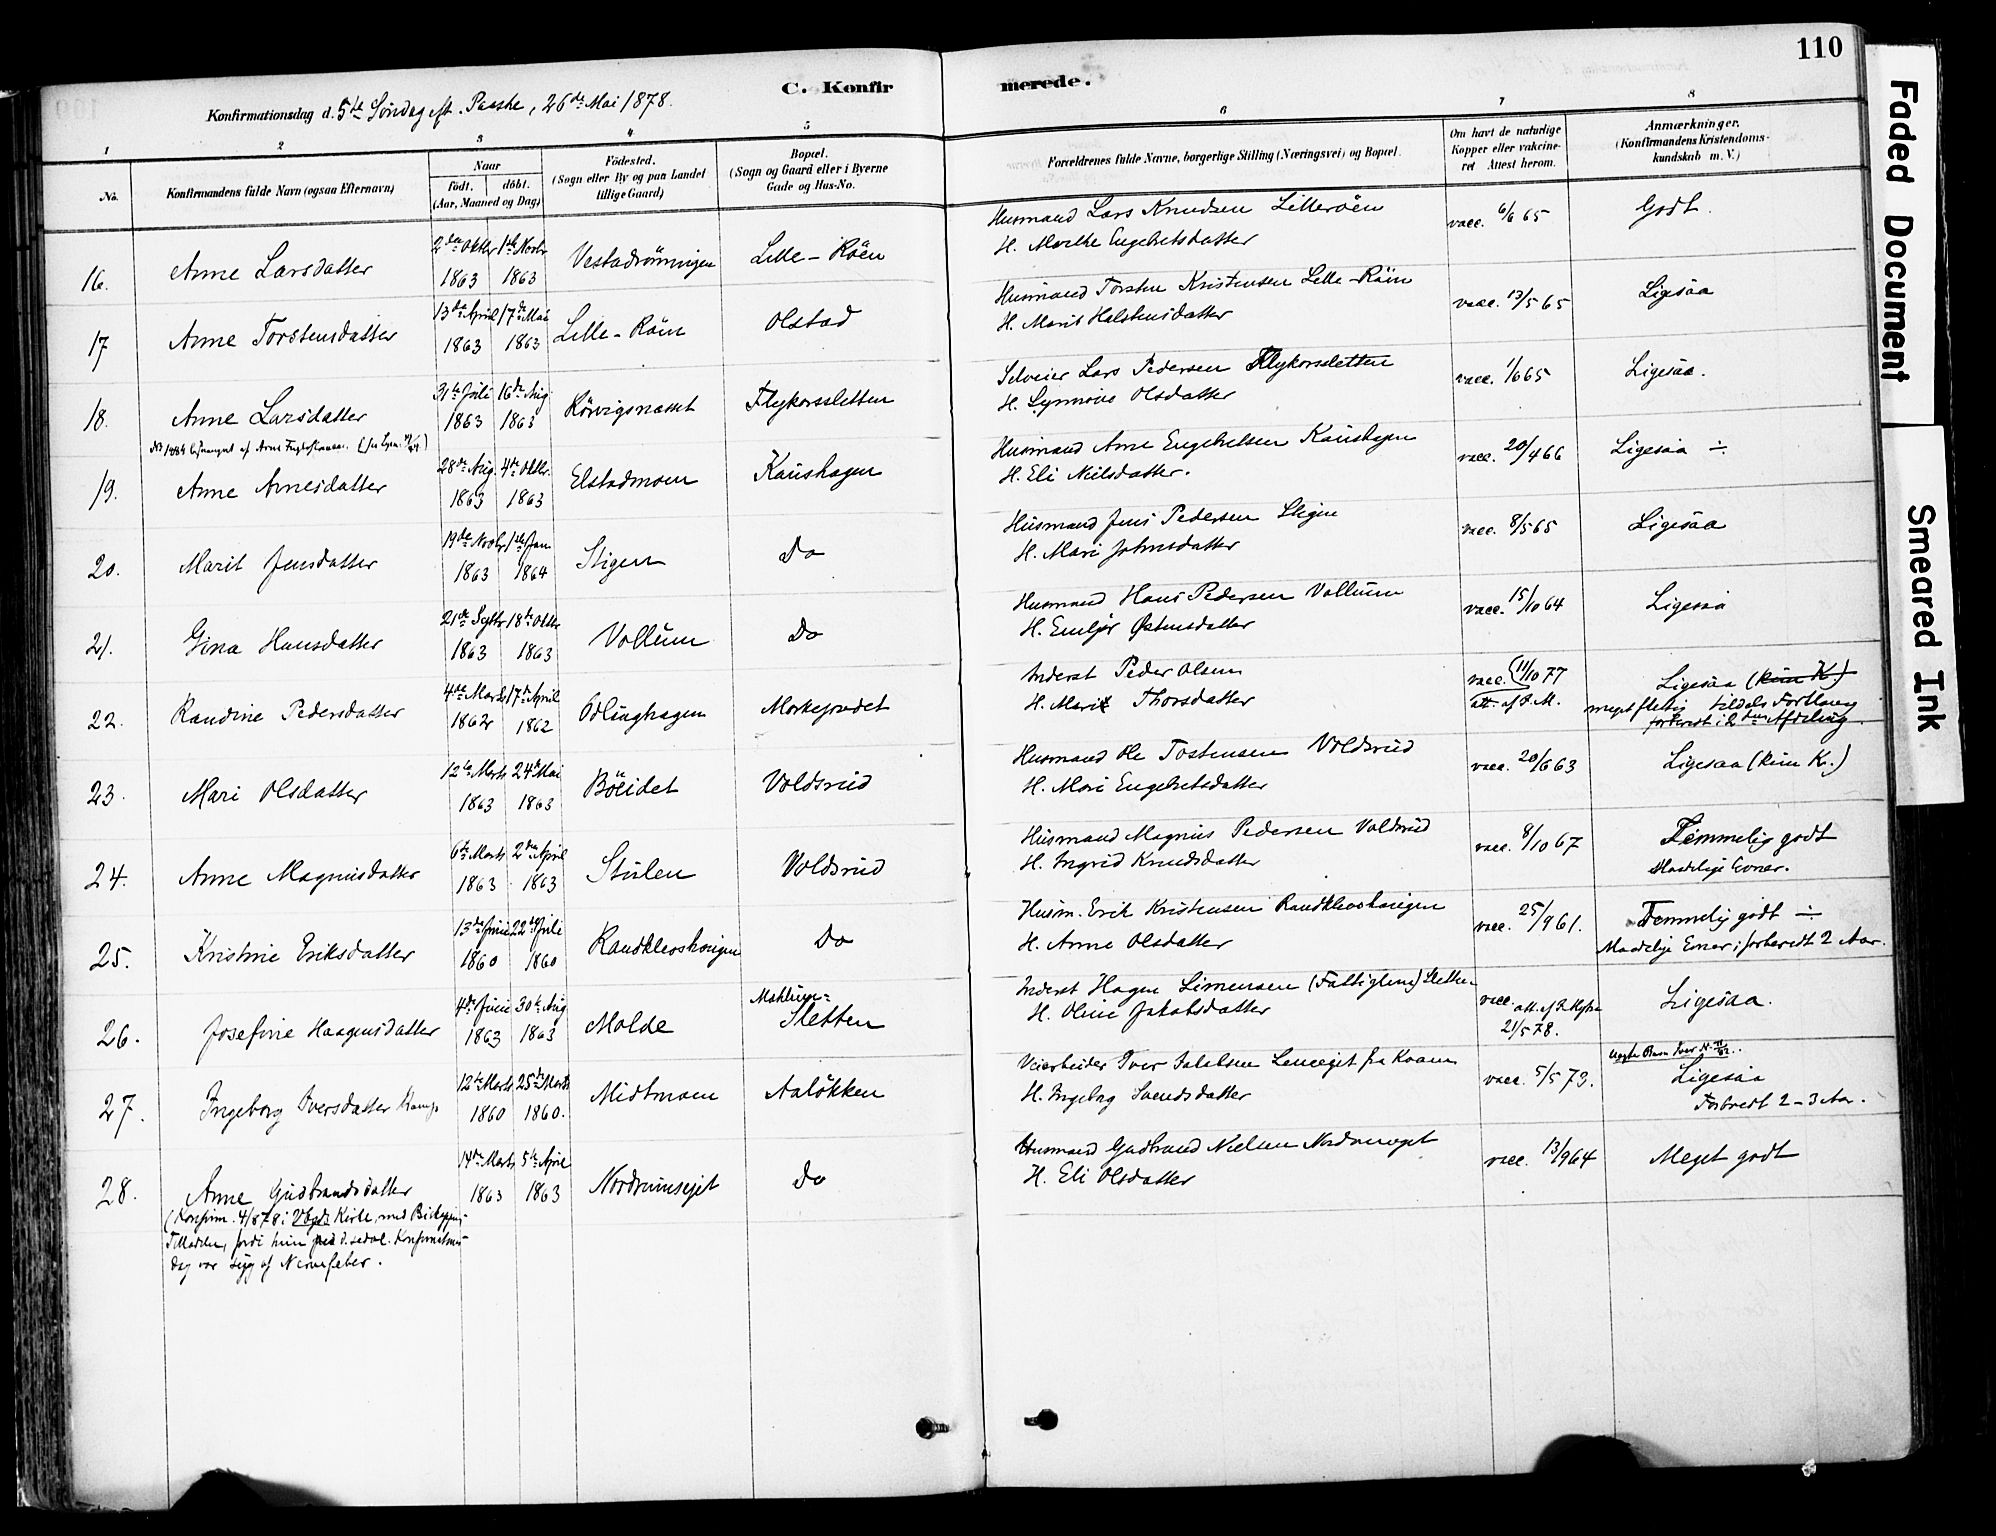 110
C. Konfirmerede.
Konfirmationsdag d. 5te Söndag eft. Paaske, 26de Mai 1878.
1 2 3 4 5 6 7 8
No. Konfirmandens fulde Navn (ogsaa Efternavn) Naar född. döbt. (Aar, Maaned og Dag) Födested. (Sogn eller By og paa Landet tillige Gaard) Bopæl. (Sogn og Gaard eller i Byerne Gade og Hus-No. Forældrenes fulde Navne, borgerlige Stilling (Næringsvei) og Bopæl. Om havt de naturlige Kopper eller vakcineret Attest herom. Anmærkninger. (Konfirmandens Kristendomskundskab m. V.)
16. Anne Larsdatter 2den Oktbr 1863 1ste Novbr 1863 Vestadrönningen Lille-Röen Husmand Lars Knudsen Lilleröen
H. Marthe Engebretsdatter vacc. 6/6 65 Godt.
17 Anne Torstensdatter 13de April 1863 17de Mai 1863 Lille-Röen Olstad Husmand Torsten Kristensen Lille-Röen
H. Marit Halstensdatter vacc. 13/5 65 Ligesaa
18. Anne Larsdatter 31te Juli 1863 16de Aug 1863 Körvigsnæsset Flykorssletten Selveier Lars Pedersen Flykorssletten
H. Synnöve Olsdatter vacc. 1/6 65 Ligesaa.
19. Anne Arnesdatter 28de Aug. 1863 4de Oktbr. 1863 Elstadmoen Kaushagen Husmand Arne Engebretsen Kaushagen
H. Eli Nielsdatter. vacc. 20/4 66 Ligesaa ÷
20. Marit Jensdatter 19de Novbr 1863 1ste Jan 1864 Stigen Do Husmand Jens Pedersen Stigen
H. Mari Johnsdatter vacc. 8/5 65 Ligesaa
21. Gina Hansdatter 21de Septbr 1863 18de Oktbr 1863 Vollum Do Husmand Hans Pedersen Vollum
H. Embjör Østensdatter vacc. 15/10 64 Ligesaa
22. Randine Pedersdatter 4de Marts 1862 17de April 1862 Odlinghagen Inderst Peder Olsen
H. Marit Thorsdatter vacc. (11/10 77
att. af Ligesaa (kun K.)
meget flittig
forberedt i 2den Afdeling.
23. Mari Olsdatter 12te Marts 1863 24de Mai 1863 Böeidet Voldsrud Husmand Ole Tostensen Voldsrud
H. Mari Engebretsdatter vacc. 20/6 63 Ligesaa (kun K.)
24. Anne Magnusdatter 6te Marts 1863 2den April 1863 Stulen Voldsrud Husmand Magnus Pedersen Voldsrud
H. Ingrid Knudsdatter vacc. 8/10 67 Temmelig godt
Maadelige Evner.
25. Kristine Eriksdatter 13de Juni 1860 22de Juli 1860 Randklevshougen Do Husm. Erik Kristensen Randklevshougen
H. Anne Olsdatter vacc. 25/9 61. Temmelig godt ÷
Maadelige Evner; forberedt 2 Aar.
26. Josefine Haagensdatter 4de Juni 1863 30te Aug 1863 Molde Mahlum-Sletten Inderst Hagen Simensen (Fattiglem) Sletten
H. Oline Jakobsdatter vacc. att. af
21/5 78. Ligesaa.
27. Ingeborg Iversdatter Kamp 12te Marts 1860 25de Marts 1860. Midtmoen Aalökken Veiarbeider Iver Jakobsen fra Kvam
H. Ingeborg Svendsdatter vacc. 5/5 73. Ligesaa
Forbredt 2-3 Aar.
28. Anne Gudbrandsdatter 14de Marts 1863 5te April 1863 Nordrumseiet Do Husmand Gudbrand Nielsen
H. Eli Olsdatter vacc. 13/9 64 Meget godt
(Konfirm. 4/8 78 i Kirke, med
Tilladelse, fordi hun ved d. sedvl. Konfirmations-
dag var syg af Nervefeber.
Faded Document
Smeared Ink